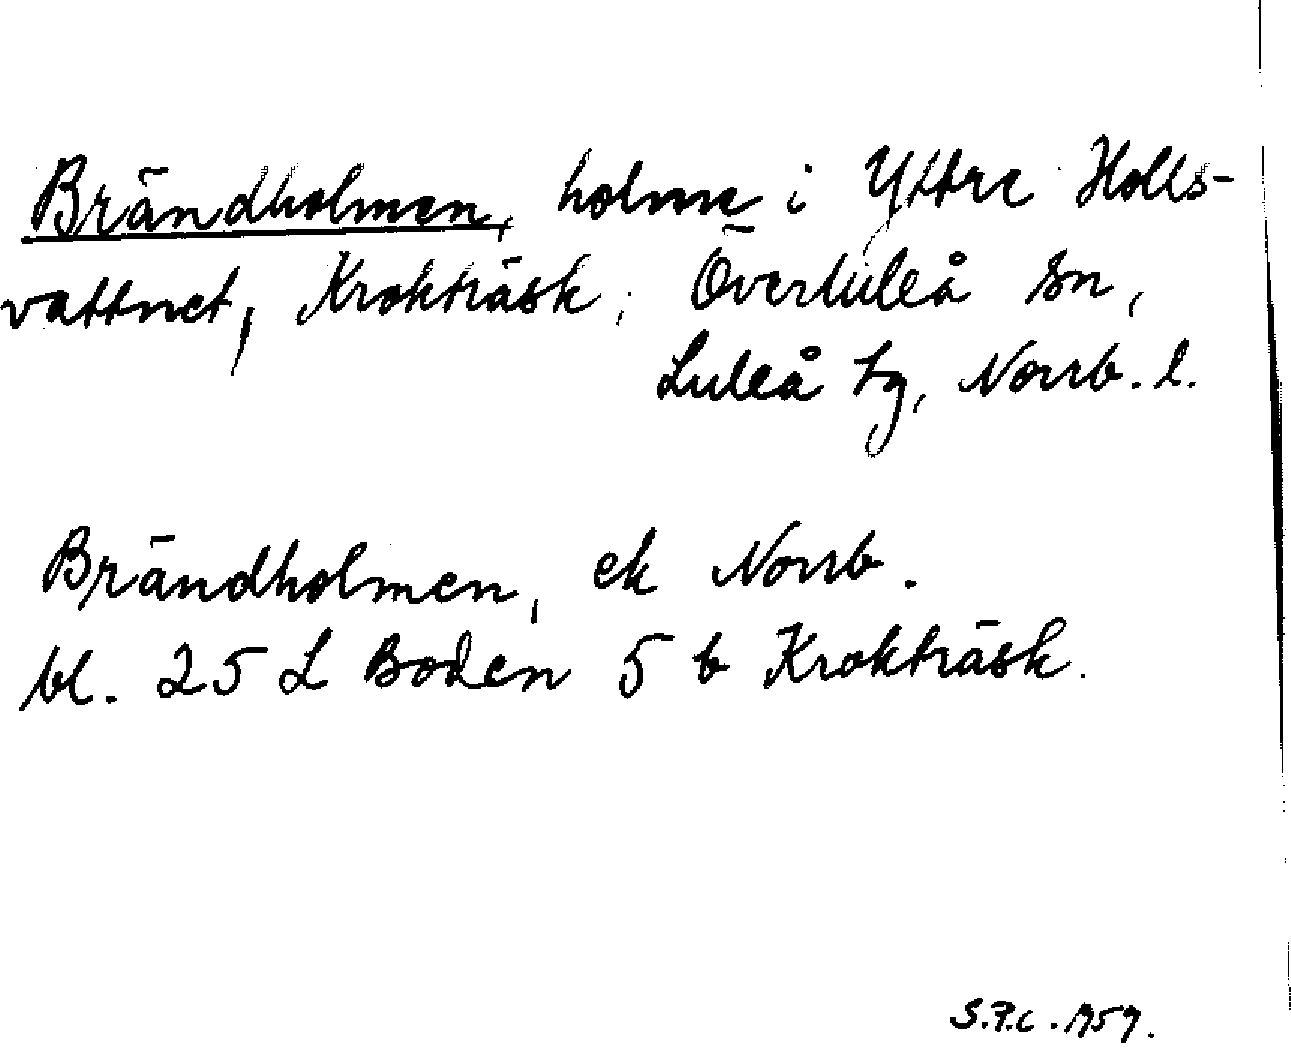 Brändholmen, holme i Yttre Holls-
vattnet, Krokträsk, Överluleå sn,
Luleå tg, Norrb. l.
Brändholmen, ek Norrb.
bl. 25 L Boden 5 b Krokträsk.
S.P.C. 1959.